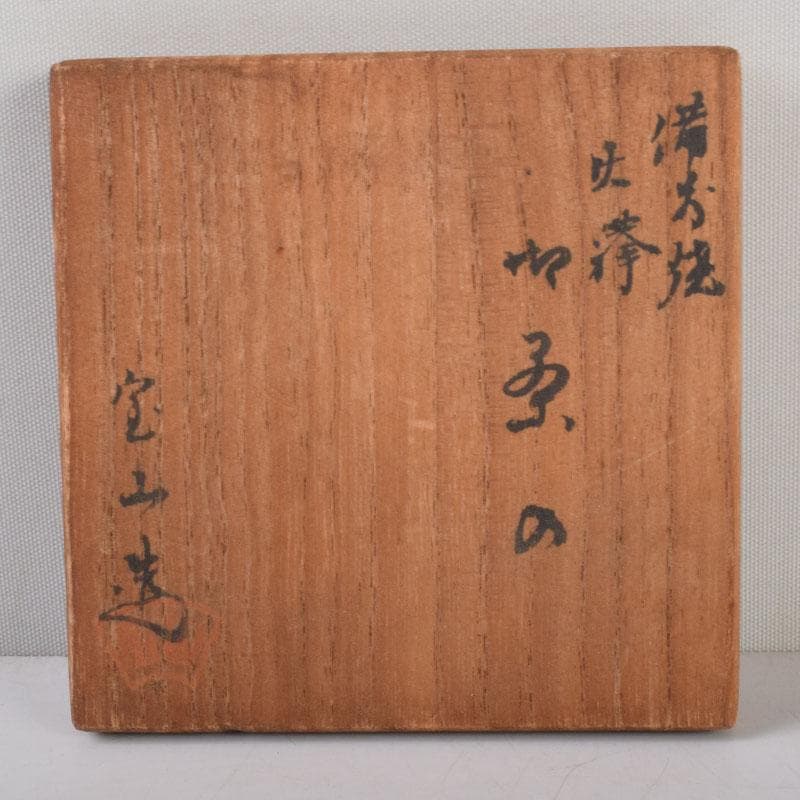 備前焼
火襷
御茶
宝山造